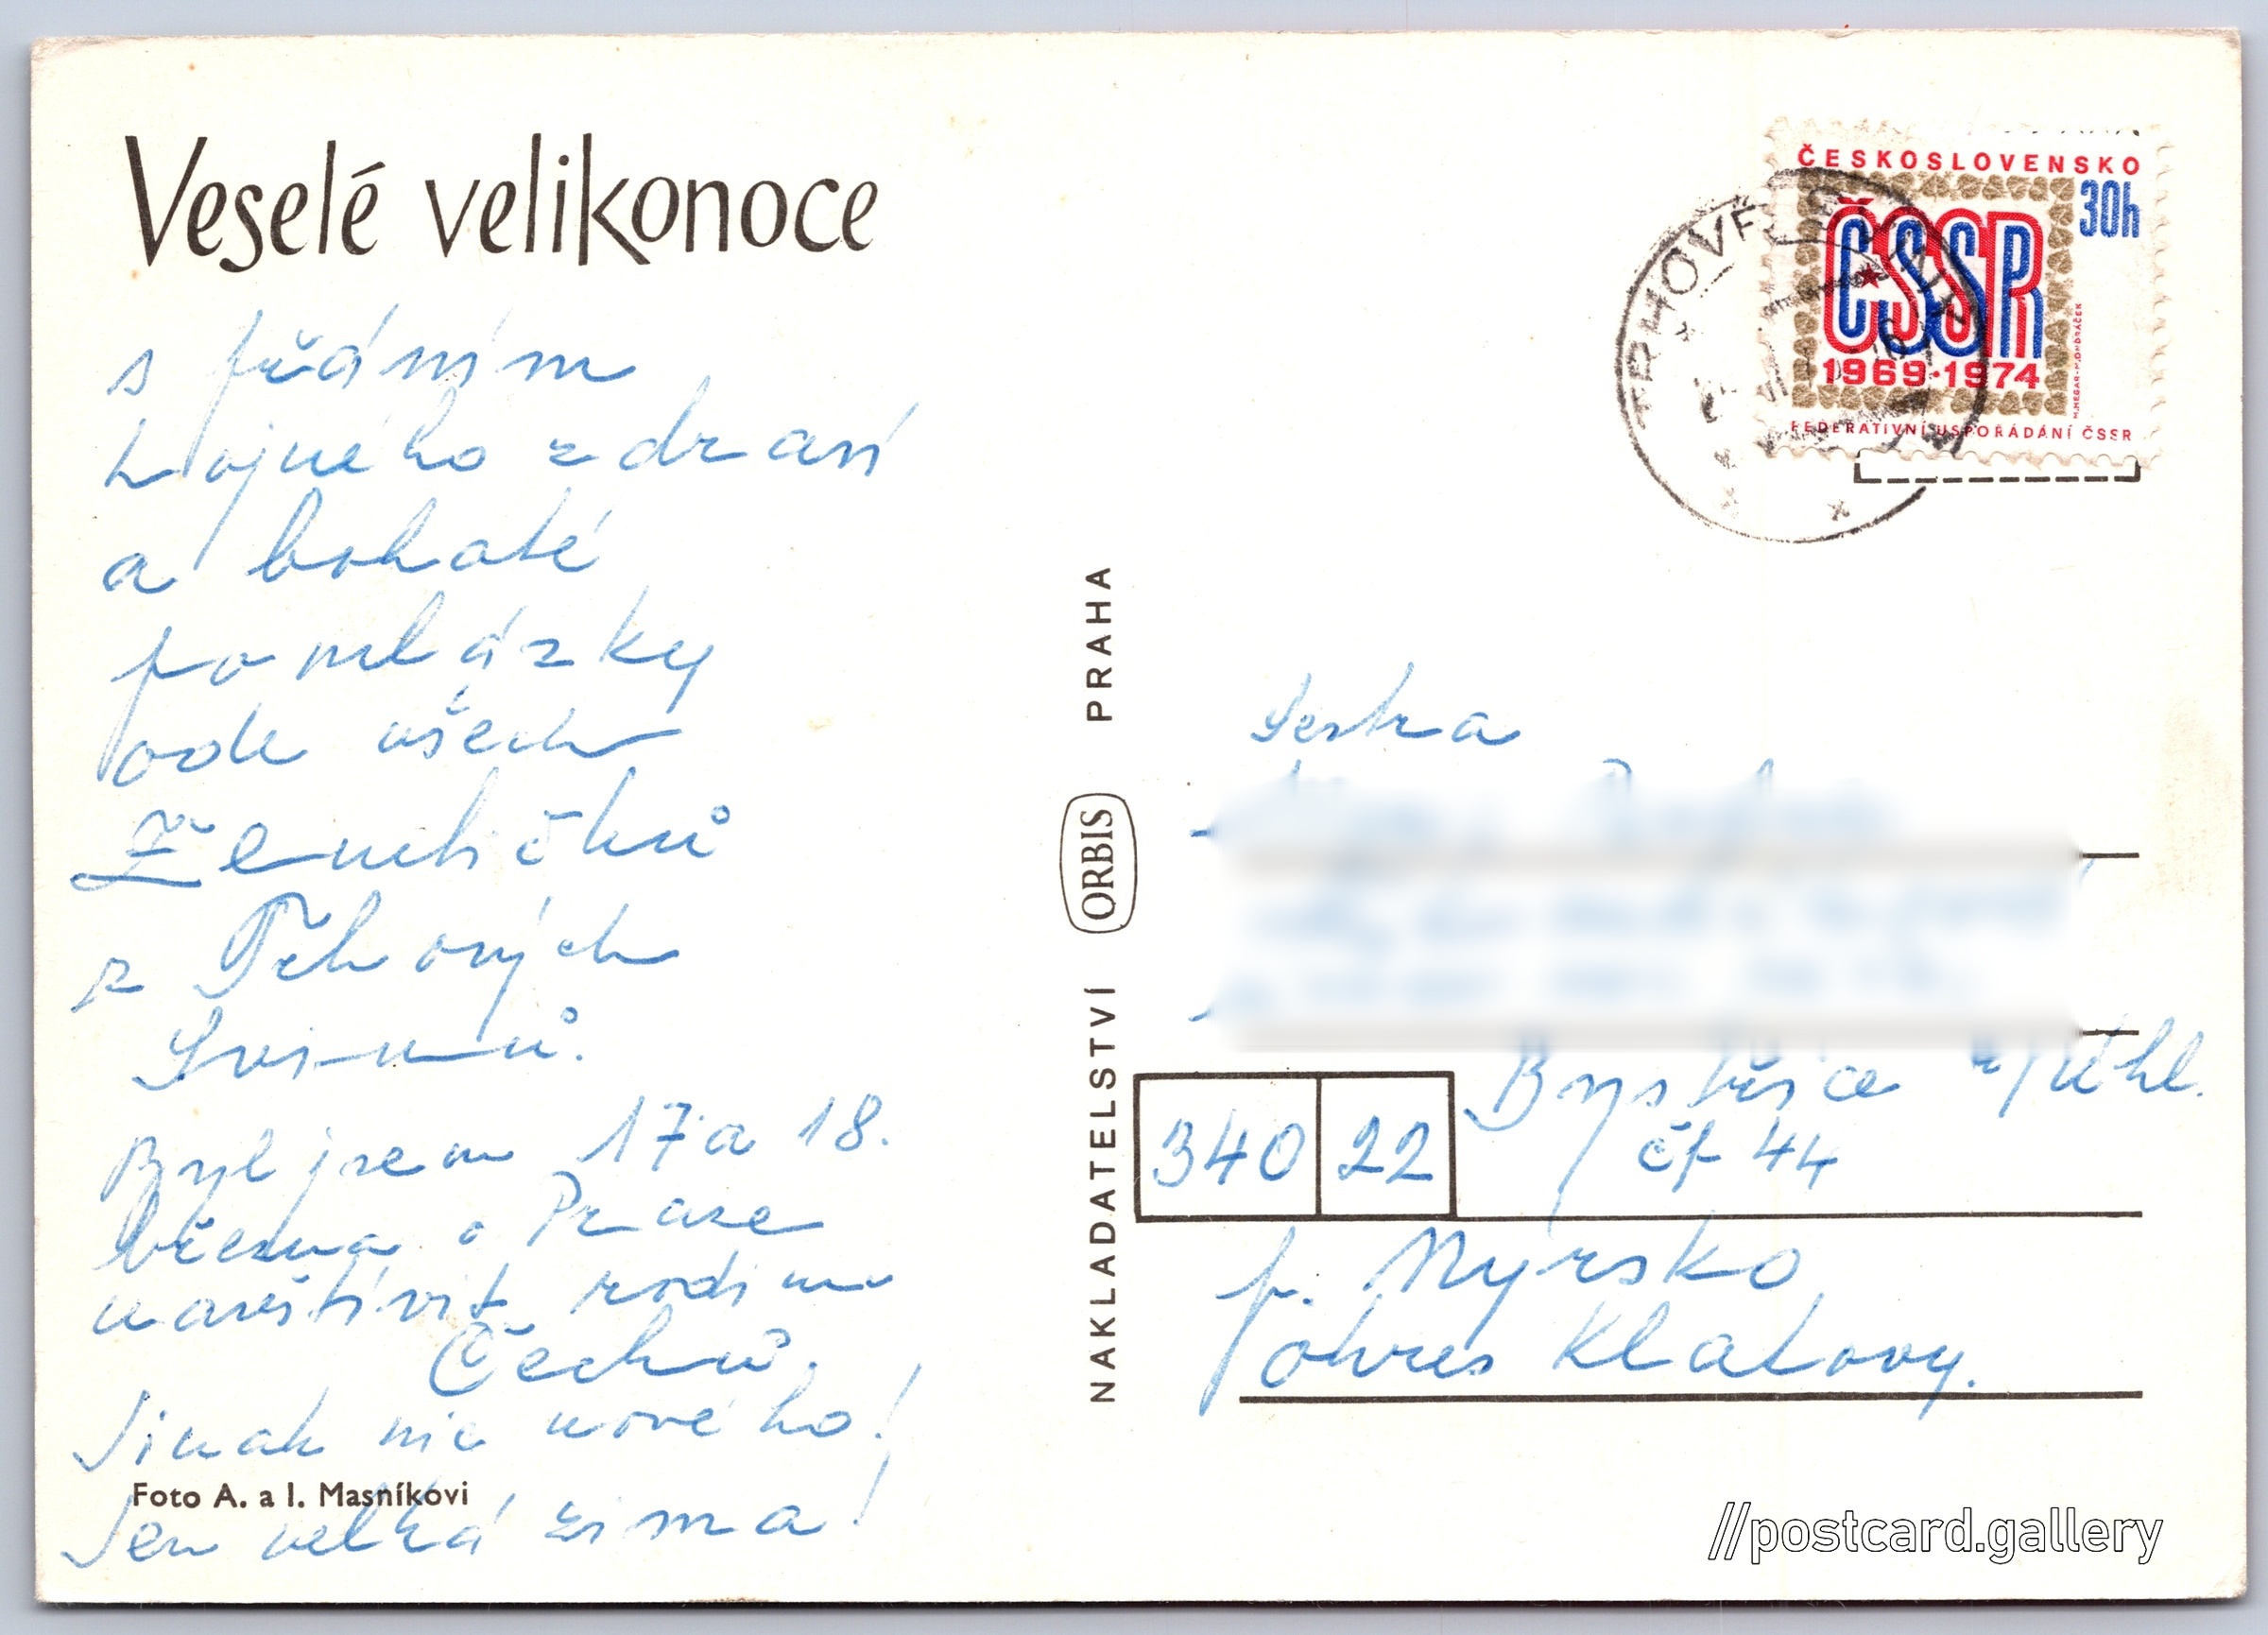 Veselé velikonoce
s přáním
hojného zdraví
a bohaté
pomlázky
ode všech
Ženbičků
z Trhových
Svinů.
Byl jsem 17 a 18.
března v Praze
navštívit rodinu
Čechů.
Jinak nic nového!
Foto A. a I. Masníkovi
Jen velká zima!
NAKLADATELSTVÍ ORBIS PRAHA
ČESKOSLOVENSKO
30h
ČSSR
1969·1974
M.HEGAR-M.ONDRÁČEK
FEDERATIVNÍ USPOŘÁDÁNÍ ČSSR
TRHOVÉ
Sestra
Bystřice n/Úhl.
340 22 čp 44
p. Nýrsko
okres Klatovy.
//postcard.gallery